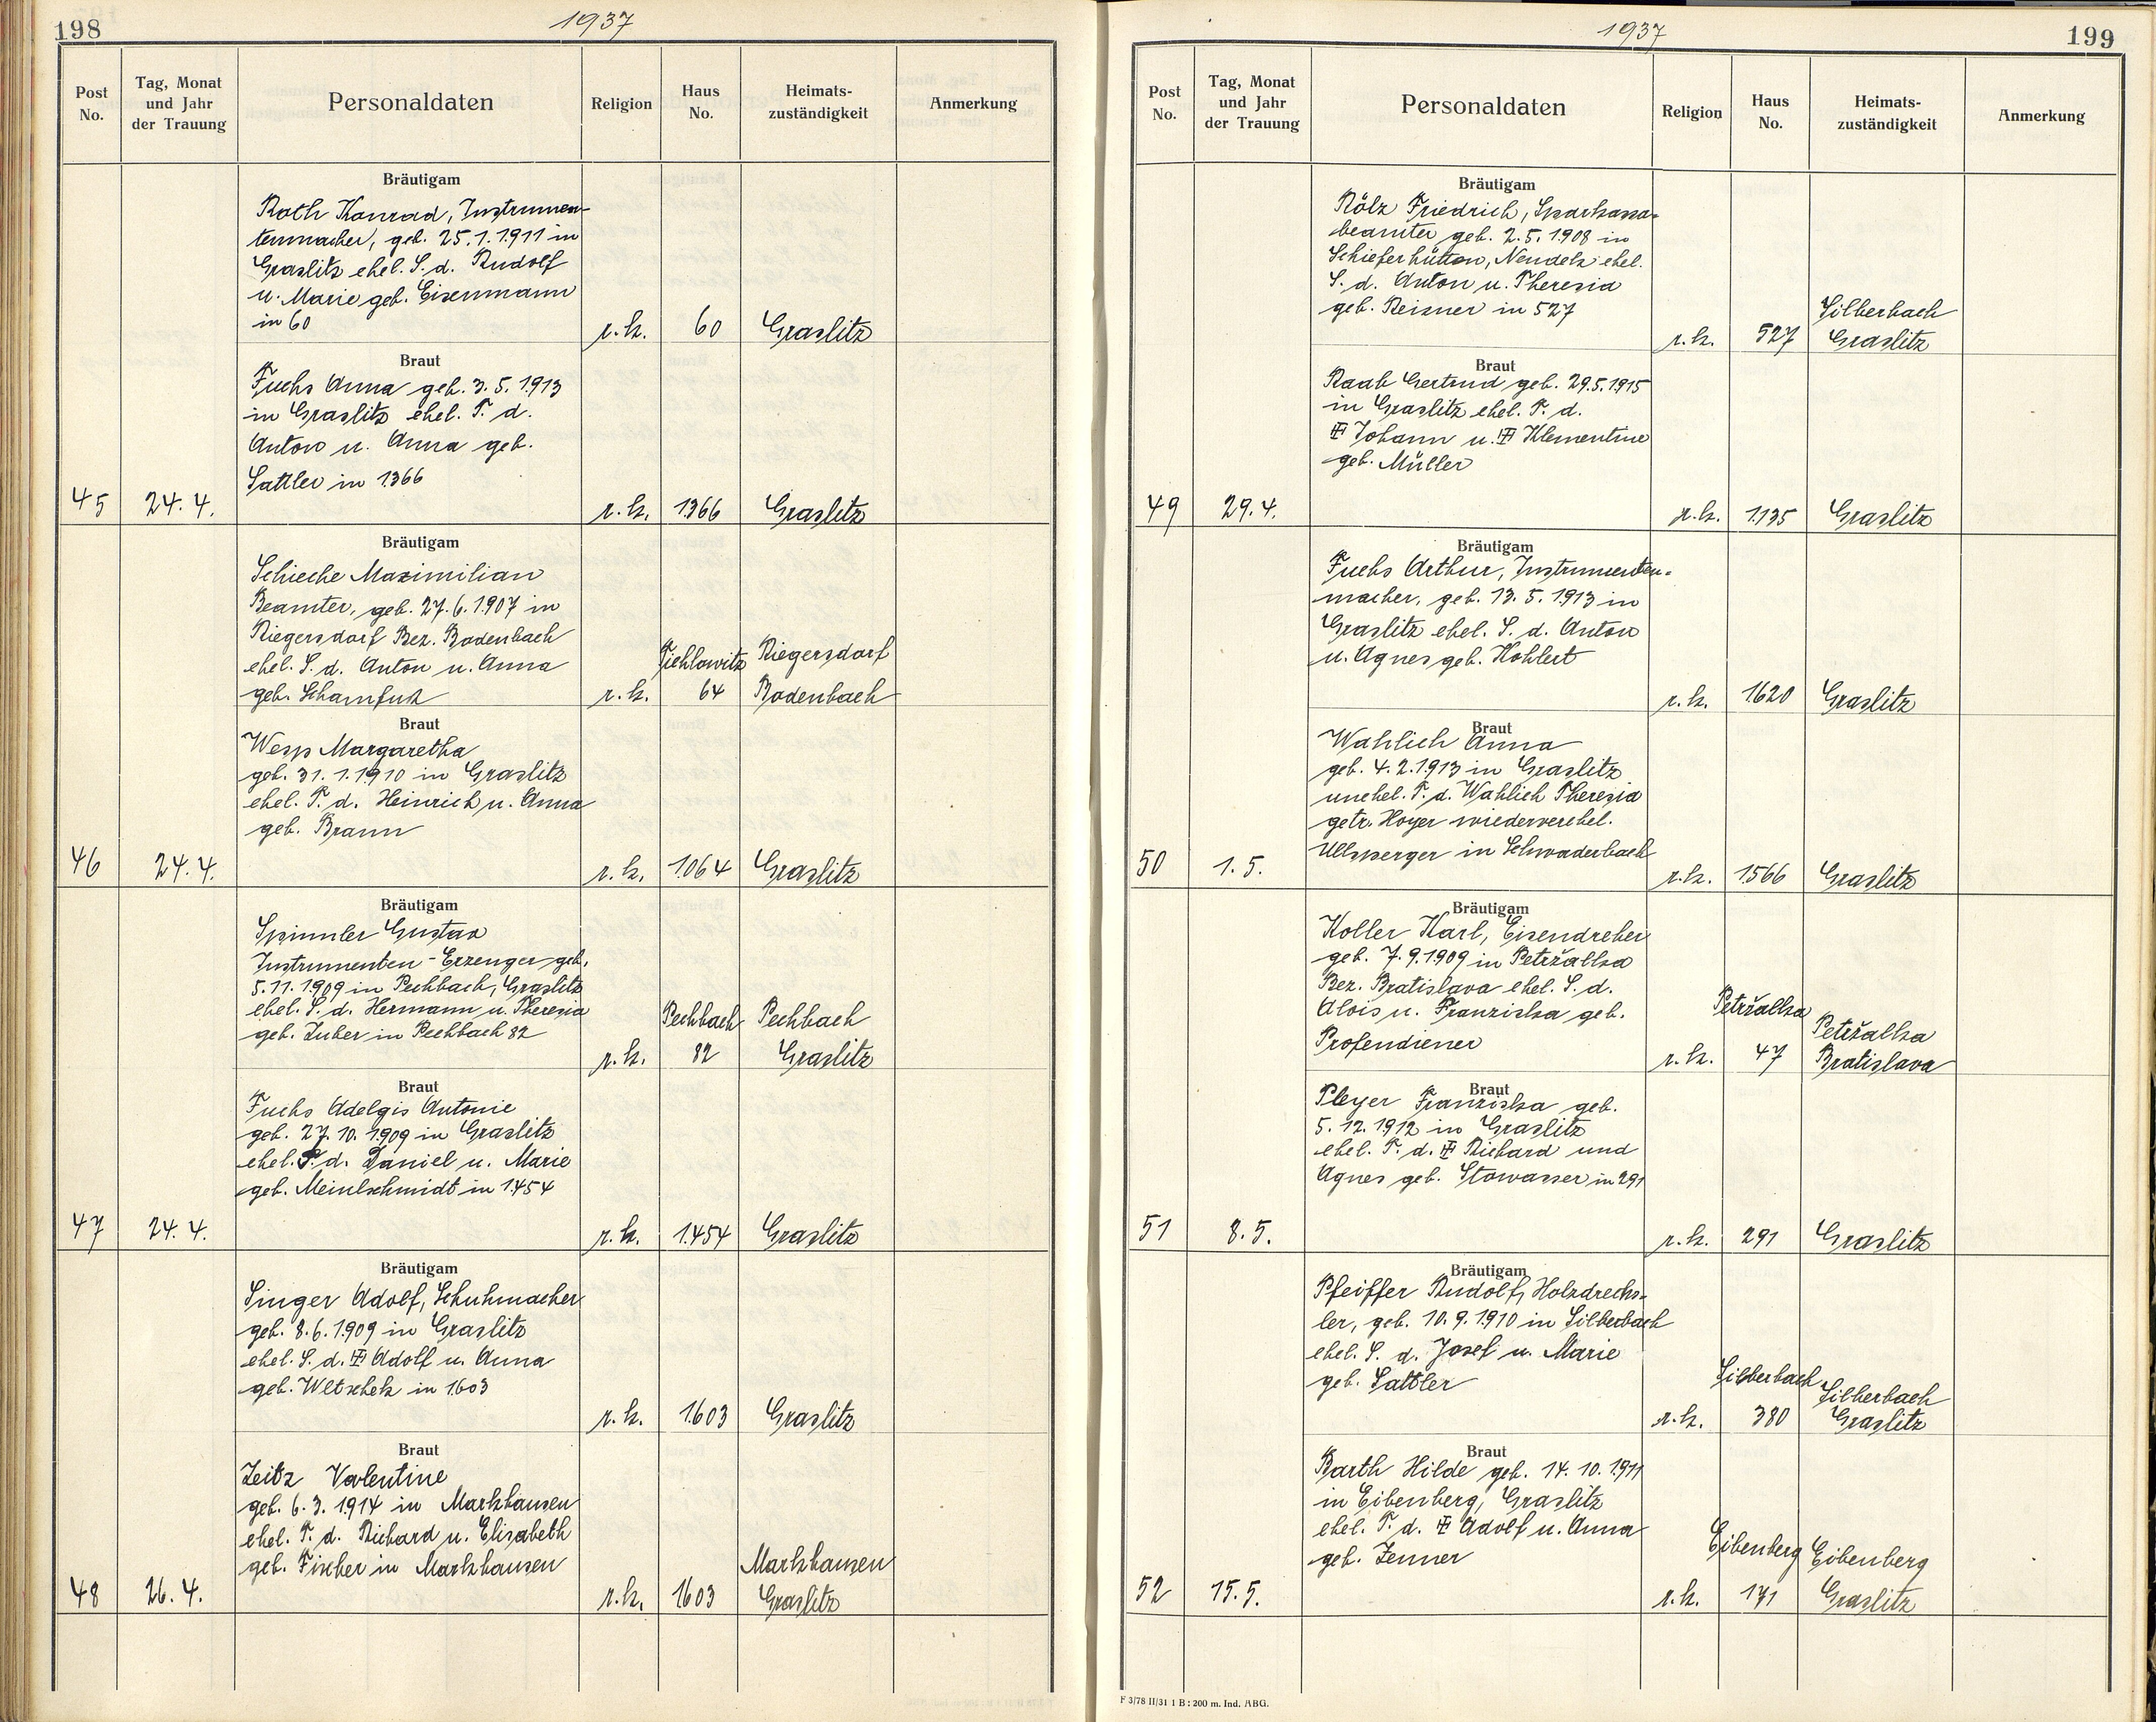 198
1937
Post No.
Tag, Monat und Jahr der Trauung
Personaldaten
Religion
Haus No.
Heimats-zuständigkeit
Anmerkung
Bräutigam
Roth Konrad, Instrumen-
tenmacher, geb. 25.1.1911 in
Graslitz ehel. S. d. Rudolf
u. Marie geb. Eisenmann
in 60
r.k. 60 Graslitz
Braut
Fuchs Anna geb. 3.5.1913
in Graslitz ehel. T. d.
Anton u. Anna geb.
Sattler in 1366
45 24.4. r.k. 1366 Graslitz
Bräutigam
Schieche Maximilian
Beamter, geb. 27.6.1907 in
Riegersdorf Bez. Bodenbach
ehel. S. d. Anton u. Anna
geb. Schamfuß
Riegersdorf
r.k. 64 Bodenbach
Braut
Wesp Margaretha
geb. 31.1.1910 in Graslitz
ehel. T. d. Heinrich u. Anna
geb. Braun
46 24.4. r.k. 1064 Graslitz
Bräutigam
Spinnler Gustav
Instrumenten-Erzeuger geb.
5.11.1909 in Pechbach, Graslitz
ehel. S. d. Hermann u. Theresia
geb. Zuber in Pechbach 82
Pechbach Pechbach
r.k. 82 Graslitz
Braut
Fuchs Adelgis Antonie
geb. 27.10.1909 in Graslitz
ehel. T. d. Daniel u. Marie
geb. Meinlschmidt in 1454
47 24.4. r.k. 1454 Graslitz
Bräutigam
Singer Adolf, Schuhmacher
geb. 8.6.1909 in Graslitz
ehel. S. d. Adolf u. Anna
geb. Wltschek in 1603
r.k. 1603 Graslitz
Braut
Zeitz Valentine
geb. 6.3.1914 in Markhausen
ehel. T. d. Richard u. Elisabeth
geb. Fischer in Markhausen
Markhausen
48 26.4. r.k. 1603 Graslitz
1937
199
Post No.
Tag, Monat und Jahr der Trauung
Personaldaten
Religion
Haus No.
Heimats-zuständigkeit
Anmerkung
Bräutigam
Rölz Friedrich, Sparkassa-
beamter geb. 2.5.1908 in
Schieferhütten, Neudek ehel.
S. d. Anton u. Theresia
geb. Reisner in 527
Silberbach
r.k. 527 Graslitz
Braut
Raab Gertrud geb. 29.5.1915
in Graslitz ehel. T. d.
Johann u. Klementine
geb. Müller
49 29.4. r.k. 1135 Graslitz
Bräutigam
Fuchs Arthur, Instrumenten-
macher, geb. 13.5.1913 in
Graslitz ehel. S. d. Anton
u. Agnes geb. Kohlert
r.k. 1620 Graslitz
Braut
Wahlich Anna
geb. 4.2.1913 in Graslitz
unehel. T. d. Wahlich Theresia
getr. Hoyer wiederverehel.
Ullsperger in Schwaderbach
50 1.5. r.k. 1566 Graslitz
Bräutigam
Koller Karl, Eisendreher
geb. 7.9.1909 in Petržalka
Bez. Bratislava ehel. S. d.
Alois u. Franziska geb.
Profendiener
Petržalka Petržalka
r.k. 47 Bratislava
Braut
Pleyer Franziska geb.
5.12.1912 in Graslitz
ehel. T. d. Richard und
Agnes geb. Stowasser in 291
51 8.5. r.k. 291 Graslitz
Bräutigam
Pfeiffer Rudolf, Holzdrechs-
ler, geb. 10.9.1910 in Silberbach
ehel. S. d. Josef u. Marie
geb. Sattler
Silberbach Silberbach
r.k. 380 Graslitz
Braut
Barth Hilde geb. 14.10.1911
in Eibenberg, Graslitz
ehel. T. d. Adolf u. Anna
geb. Zenner
Eibenberg Eibenberg
52 15.5. r.k. 171 Graslitz
F 3/78 II/31 1 B: 200 m. Ind. ABG.